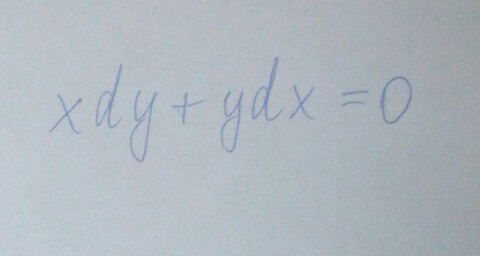 xdy + ydx = 0